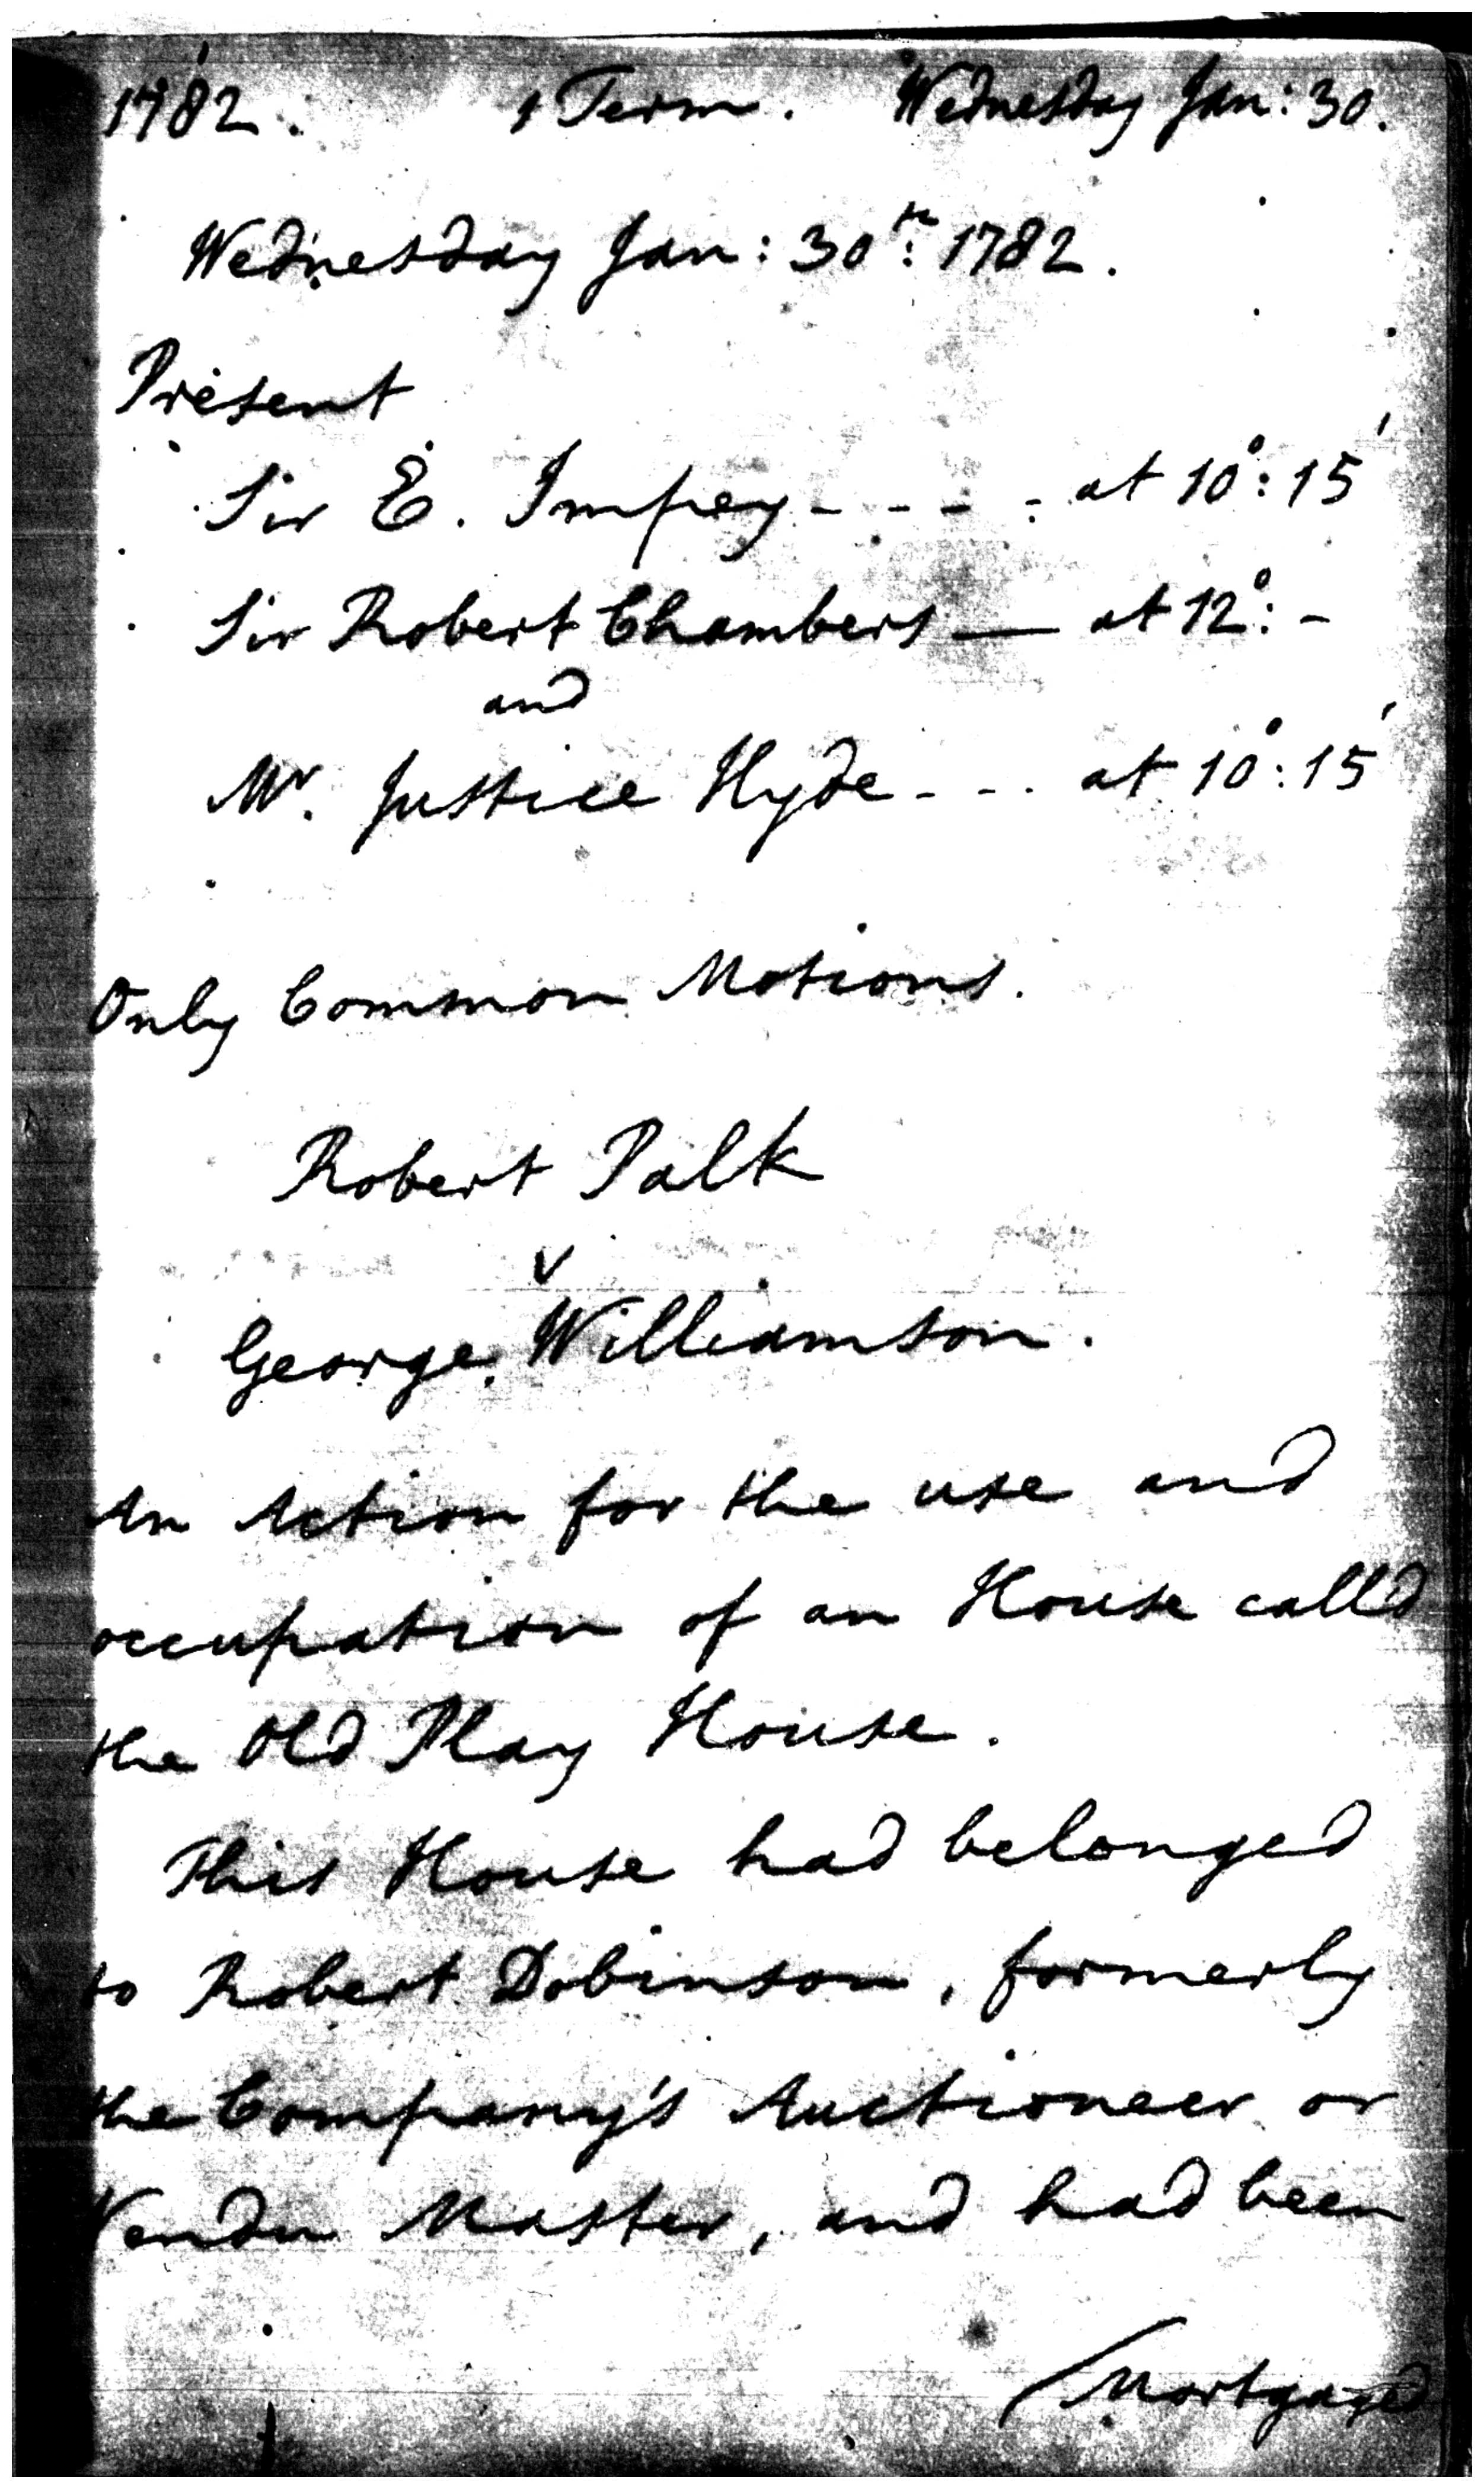 1782. 1 Term. Wednesday Jan: 30.
Wednesday Jan: 30th: 1782.
Present
Sir E. Impey - - - - at 10°: 15'
Sir Robert Chambers — at 12°: -
and
Mr. Justice Hyde - - - at 10°: 15'
Only Common Motions.
Robert Palk
v
George Williamson.
An Action for the use and
occupation of an House call'd
the Old Play House.
This House had belonged
to Robert Dobinson, formerly
the Company's Auctioneer or
Vendu Master, and had been
/Mortgaged